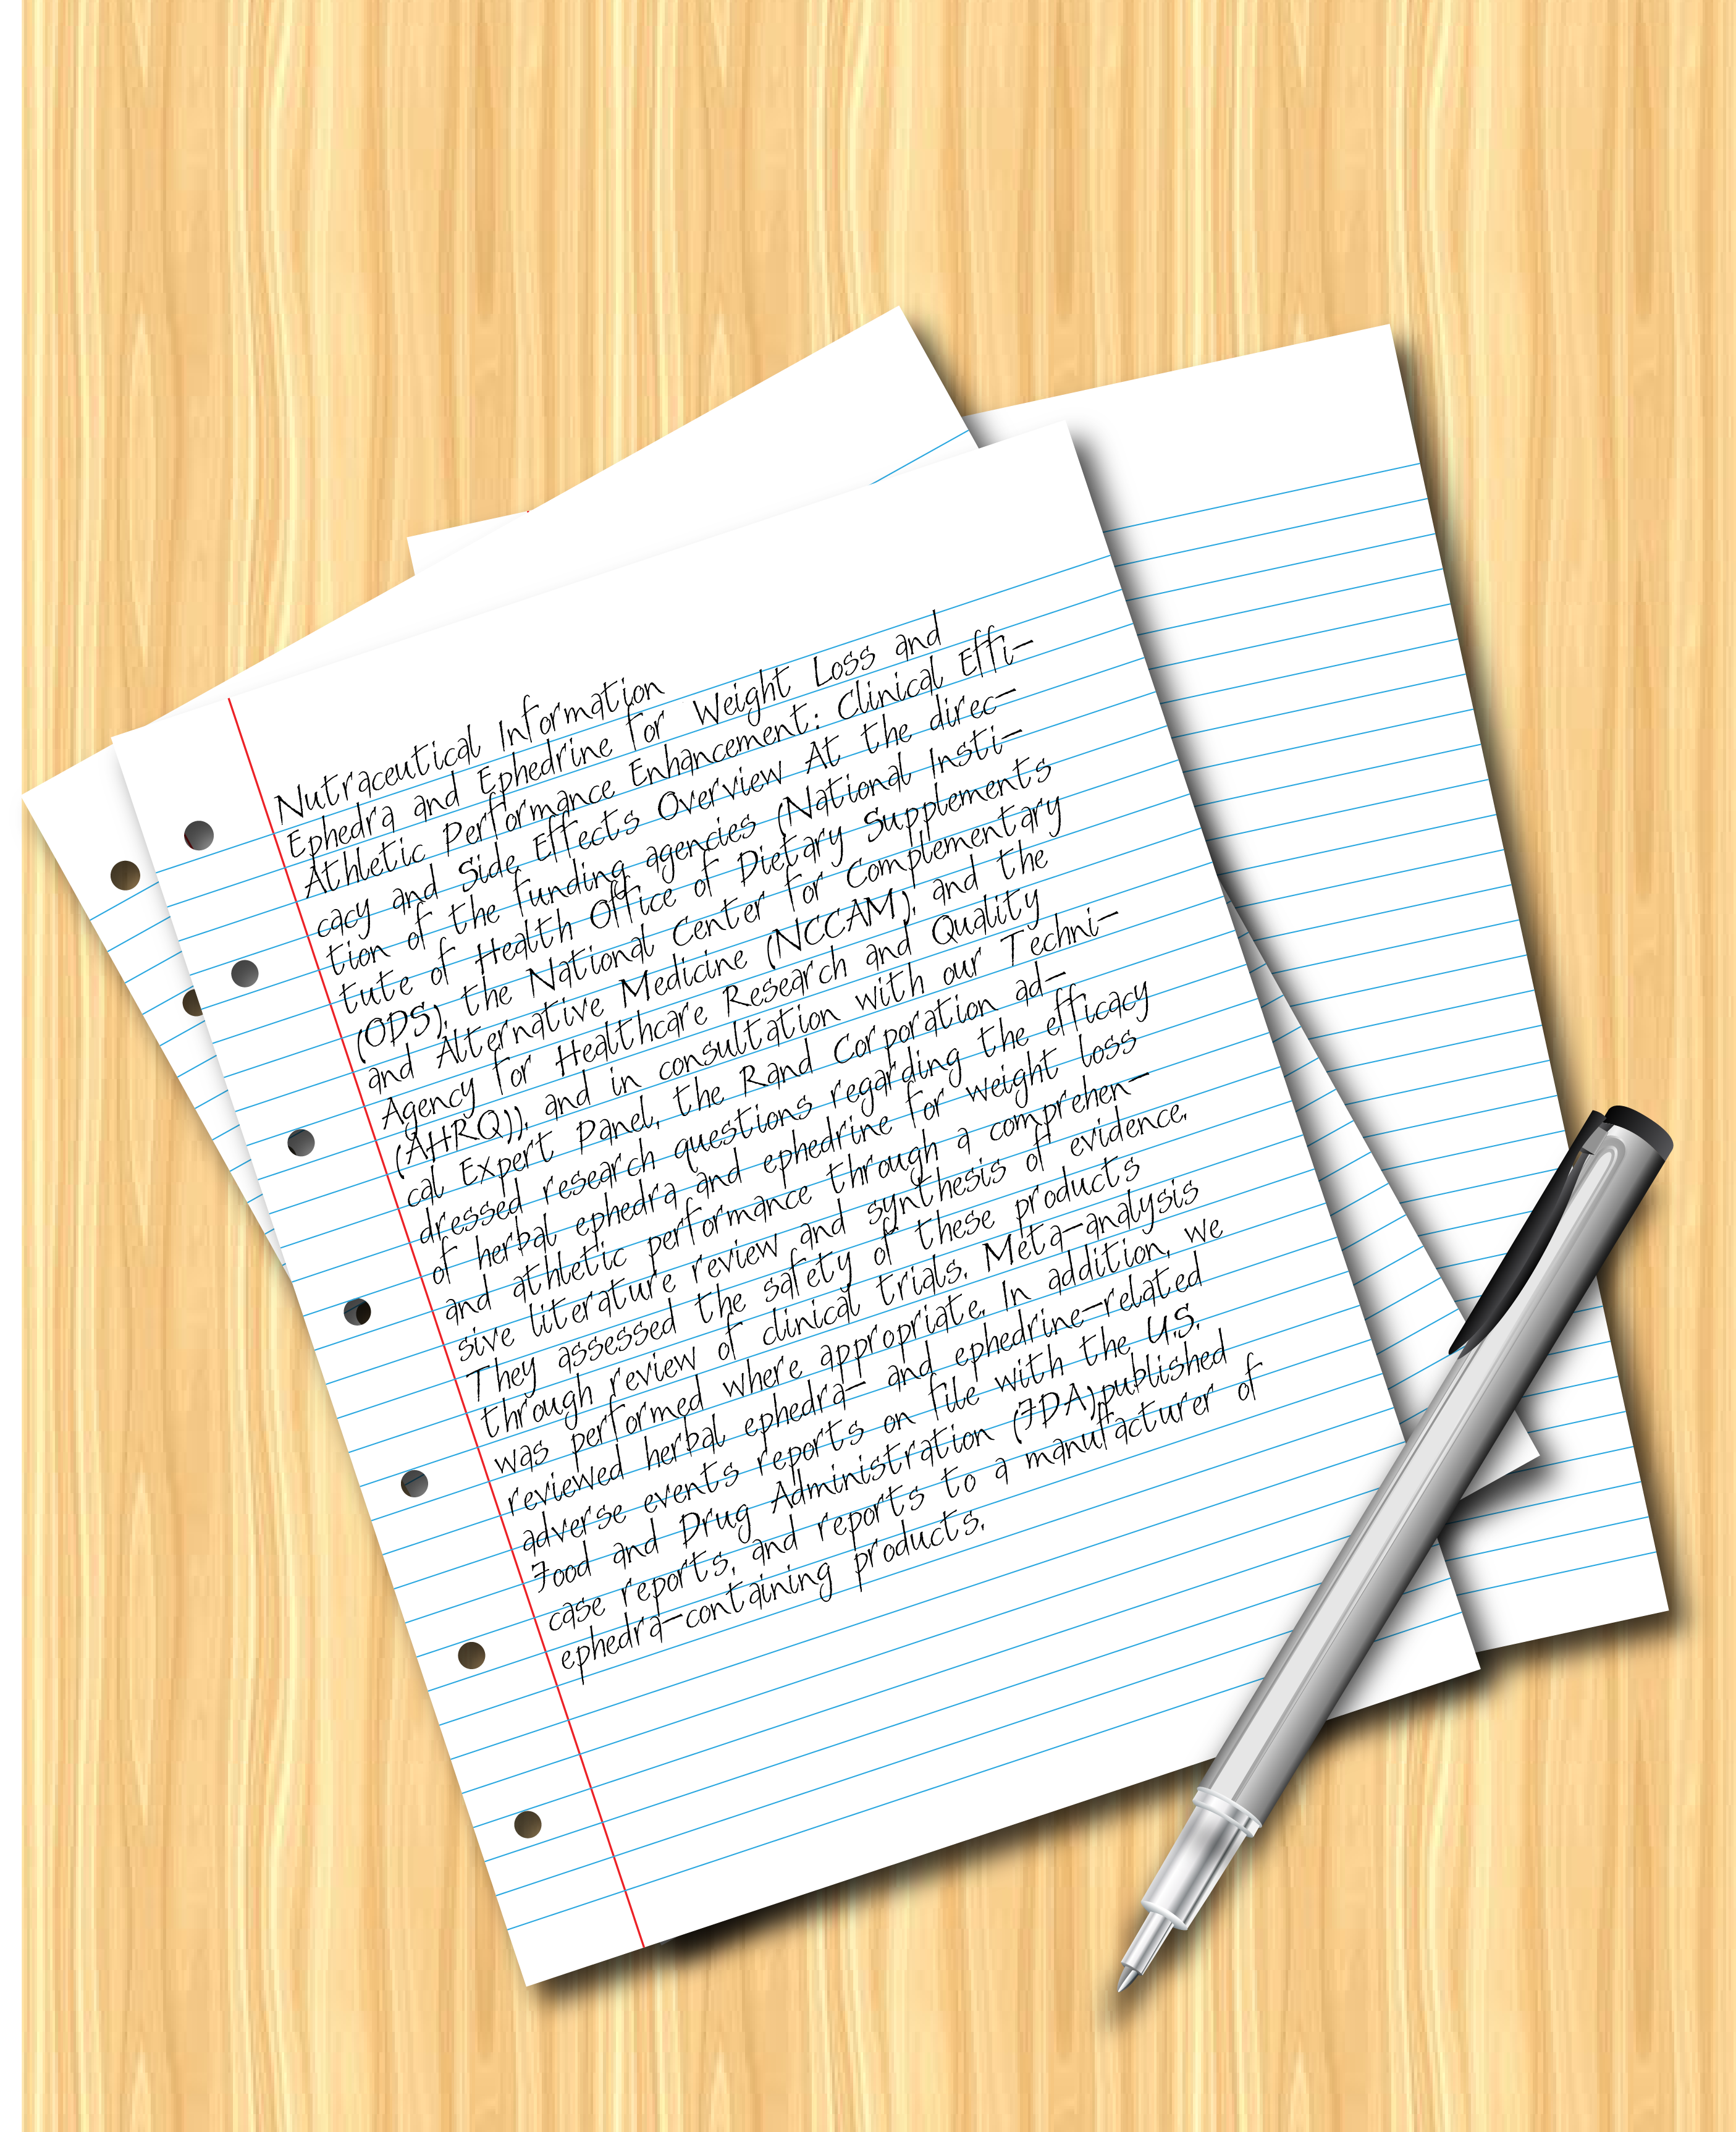 Nutraceutical Information
Ephedra and Ephedrine for Weight Loss and
Athletic Performance Enhancement: Clinical Effi-
cacy and Side Effects Overview At the direc-
tion of the funding agencies (National Insti-
tute of Health Office of Dietary Supplements
(ODS), the National Center for Complementary
and Alternative Medicine (NCCAM), and the
Agency for Healthcare Research and Quality
(AHRQ)), and in consultation with our Techni-
cal Expert Panel, the Rand Corporation ad-
dressed research questions regarding the efficacy
of herbal ephedra and ephedrine for weight loss
and athletic performance through a comprehen-
sive literature review and synthesis of evidence.
They assessed the safety of these products
through review of clinical trials. Meta-analysis
was performed where appropriate. In addition, we
reviewed herbal ephedra- and ephedrine-related
adverse events reports on file with the U.S.
Food and Drug Administration (FDA)published
case reports, and reports to a manufacturer of
ephedra-containing products.